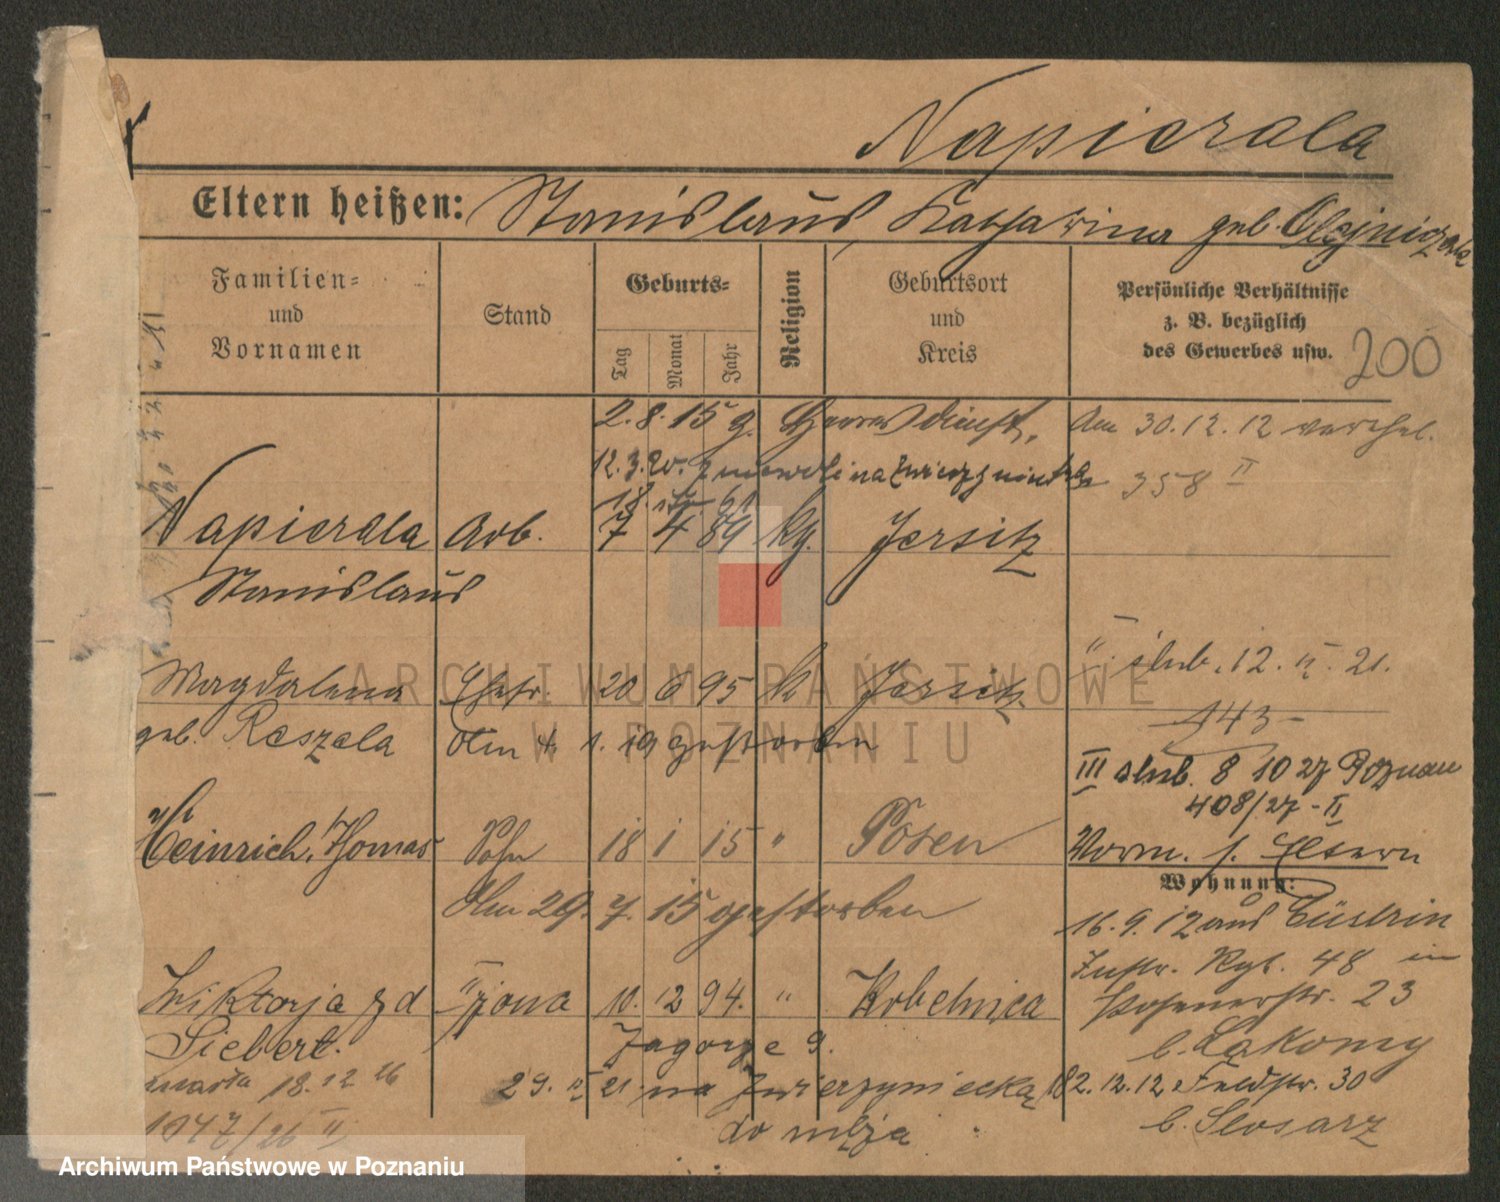 Napierala
Eltern heißen: Stanislaus Katharina geb. Olejniczak
Familien=
und
Vornamen
Stand
Geburts=
Tag
Monat
Jahr
Religion
Geburtsort
und
Kreis
Persönliche Verhältnisse
z. B. bezüglich
des Gewerbes usw.
200
2.8.15 z. Heeresdienst,
Am 30.12.12 verehel.
12.3.20. z niewoli na Zwierzyniecką
358 II
Napierala Arb. 7 4 89 kg. Jersitz
Stanislaus
II ślub. 12. II. 21.
Magdalena Ehefr. 20 6 95 k Jersitz
143
geb. Reszela Am 4. 1. 19 gestorben
III ślub. 8 10 27 Poznań
408/27 - II
Heinrich, Thomas Sohn 18 1 15 " Posen
Vorm. s. Eltern
Wohnung:
Am 29. 7. 15 gestorben
16.9.12 aus Cüstrin
Inftr. Rgt. 48 in
Wiktorja zd II żona 10. 12 94. " Kobelnica
Posenerstr. 23
Siebert. Zagorze 9.
b. Lakomy
zmarła 18.12 26
29. II 21. na Zwierzyniecką 18
2.12.12 Feldstr. 30
1047/26 II
do męża
b. Slosarz
ARCHIWUM PAŃSTWOWE
W POZNANIU
Archiwum Państwowe w Poznaniu